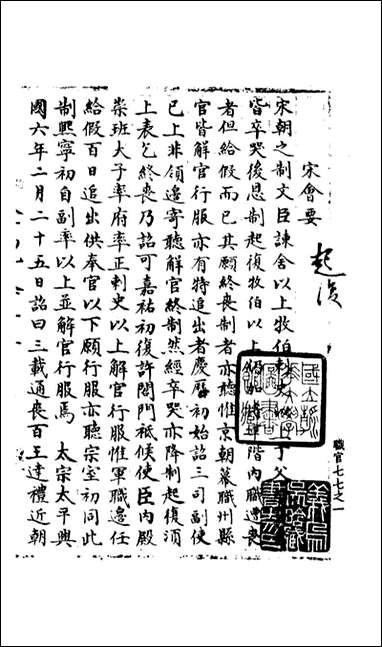 宋會要
起復
宋朝之制文臣諫舍以上牧伯刺史以上丁父
皆卒哭後恩制起復牧伯以上階內職遭喪
者但給假而已其願終喪制者亦聽惟京朝幕職州縣
官皆解官行服亦有特追出者慶曆初始詔三司副使
已上非領邊寄聽解官終制然經卒哭亦降制起復須
上表乞終喪乃詔可嘉祐初復許閤門祗候使臣內殿
崇班太子率府率正刺史以上解官行服惟軍職邊任
給假百日追出供奉官以下願行服亦聽宗室初同此
制熙寧初自副率以上並解官行服焉 太宗太平興
國六年二月二十五日詔曰三載通喪百王達禮近朝
職官七七之一